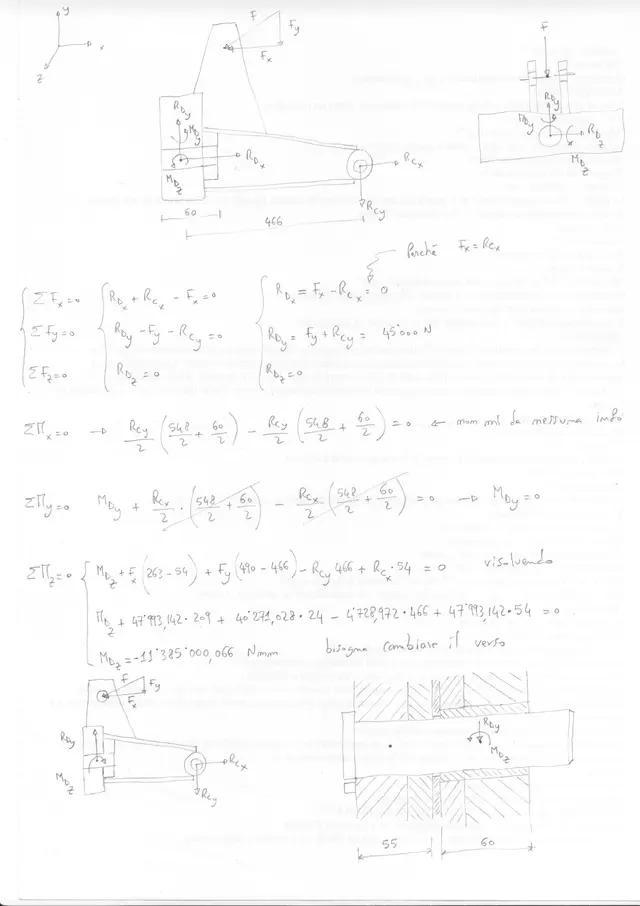 y
x
z
F
Fy
Fx
R_Dy
M_Dy
R_Dx
M_Dz
R_Cx
R_Cy
60
466
F
R_Dy
M_Dy
R_Dz
x
M_Dz
Perché Fx = R_Cx
ΣFx=0 R_Dx + R_Cx - Fx = 0 R_Dx = Fx - R_Cx = 0
ΣFy=0 R_Dy - Fy - R_Cy = 0 R_Dy = Fy + R_Cy = 45'000 N
ΣFz=0 R_Dz = 0 R_Dz = 0
ΣMx=0 → R_Cy/2 (548/2 + 60/2) - R_Cy/2 (548/2 + 60/2) = 0 ← non mi da nessuna info
ΣMy=0 M_Dy + R_Cx/2 · (548/2 + 60/2) - R_Cx/2 (548/2 + 60/2) = 0 → M_Dy = 0
ΣMz=0 M_Dz + Fx (263-54) + Fy (490-466) - R_Cy 466 + R_Cx · 54 = 0 risolvendo
M_Dz + 47'993,142 · 209 + 40'271,028 · 24 - 4'728,972 · 466 + 47'993,142 · 54 = 0
M_Dz = -11'385'000,066 Nmm bisogna cambiare il verso
F
Fy
Fx
R_Dy
M_Dz
R_Cx
R_Cy
R_Dy
M_Dz
55
60